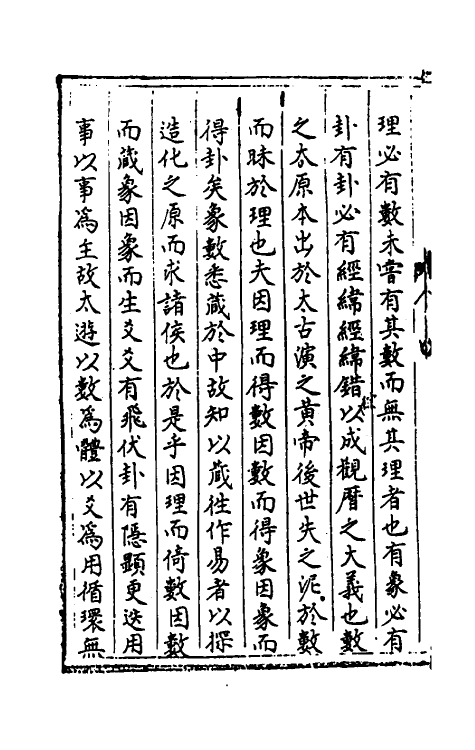 理必有數未嘗有其數而無其理者也有象必有
卦有卦必有經緯經緯錯以成觀曆之大義也數
之太原本出於太古演之黃帝後世失之泥於數
而昧於理也夫因理而得數因數而得象因象而
得卦矣象數悉藏於中故知以藏往作易者以探
造化之原而求諸侯也於是乎因理而倚數因數
而藏象因象而生爻爻有飛伏卦有隱顯更迭用
事以事為主故太遊以數為體以爻為用循環無